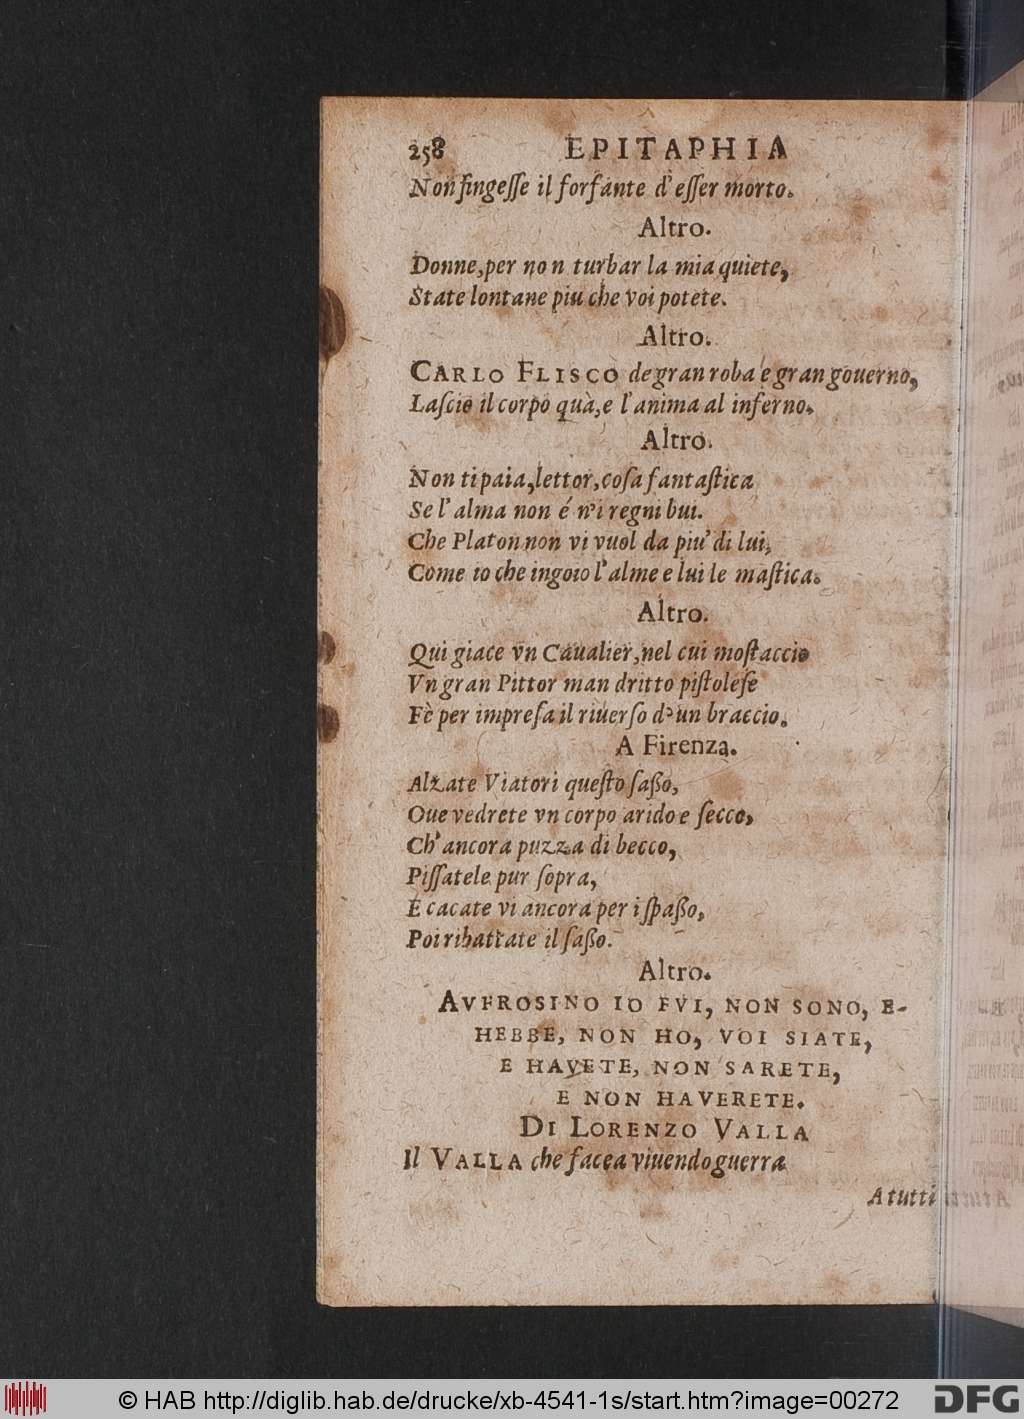 258 EPITAPHIA
Non fingeſſe il forfante d'eſſer morto.
Altro.
Donne, per non turbar la mia quiete,
State lontane piu che voi potete.
Altro.
CARLO FLISCO de gran roba e gran gouerno,
Laſcio il corpo quà, e l'anima al inferno.
Altro.
Non ti paia, lettor, coſa fantaſtica
Se l'alma non é n'i regni bui.
Che Platon non vi vuol da piu' di lui,
Come io che ingoio l'alme e lui le maſtica.
Altro.
Qui giace vn Caualier, nel cui moſtaccio
Vn gran Pittor man dritto piſtoleſe
Fè per impreſa il riuerſo d'un braccio.
A Firenza.
Alzate Viatori queſto ſaßo,
Oue vedrete vn corpo arido e ſecco,
Ch'ancora puzza di becco,
Piſſatele pur ſopra,
E cacate vi ancora per iſpaßo,
Poi ribattate il ſaßo.
Altro.
AVFROSINO IO FVI, NON SONO, E-
HEBBE, NON HO, VOI SIATE,
E HAVETE, NON SARETE,
E NON HAVERETE.
DI LORENZO VALLA
Il VALLA che facea viuendo guerra
A tutti
© HAB http://diglib.hab.de/drucke/xb-4541-1s/start.htm?image=00272
DFG